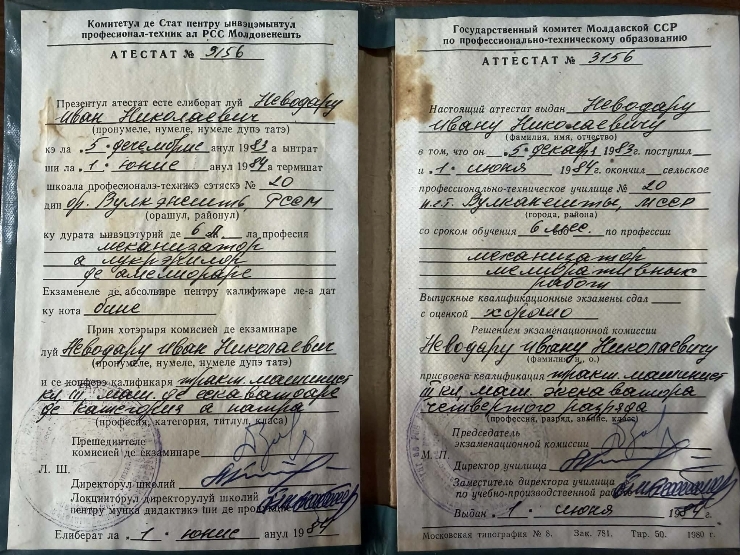 Комитетул де Стат пентру ынвэцэмынтул
професионал-техник ал РСС Молдовенешть
АТЕСТАТ № 3156
Презентул атестат есте елиберат луй Неводару
Иван Николаевич
(пронумеле, нумеле, нумеле дупэ татэ)
кэ ла „5" дечембрие анул 1983 а ынтрат
ши ла „1" юние анул 1984 а терминат
шкоала професионалэ-техникэ сэтяскэ № 20
дин ор. Вулкэнешть РССМ
(орашул, районул)
ку дурата ынвэцэтурий де 6 л. ла професия
механизатор
а лукрэрилор
де амелиораре
Екзаменеле де абсолвире пентру калификаре ле-а дат
ку нота бине
Прин хотэрыря комисией де екзаминаре
луй Неводару Иван Николаевич
(пронумеле, нумеле, нумеле дупэ татэ)
и се конферэ калификаря тракт. машинист
кл. III. маш. де ескаватоаре
де категория а патра
(професия, категория, титлул, класа)
Прешединтеле
комисией де екзаминаре
Л. Ш.
Директорул школий
Локцииторул директорулуй школий
пентру мунка дидактикэ ши де продукцие
Елиберат ла „1" юние анул 1984
Государственный комитет Молдавской ССР
по профессионально-техническому образованию
АТТЕСТАТ № 3156
Настоящий аттестат выдан Неводару
Ивану Николаевичу
(фамилия, имя, отчество)
в том, что он „5" декаб 1983 г. поступил
и „1" июня 1984 г. окончил сельское
профессионально-техническое училище № 20
п.г.т. Вулканешты, МССР
(города, района)
со сроком обучения 6 мес. по профессии
механизатор
мелиоративных
работ
Выпускные квалификационные экзамены сдал
с оценкой хорошо
Решением экзаменационной комиссии
Неводару Ивану Николаевичу
(фамилия, и., о.)
присвоена квалификация тракт. машинист
III кл. маш. экскаватора
четвертого разряда
(профессия, разряд, звание, класс)
Председатель
экзаменационной комиссии
М. П.
Директор училища
Заместитель директора училища
по учебно-производственной работе
Выдан „1" июня 1984 г.
Московская типография № 8. Зак. 781. Тир. 50. 1980 г.